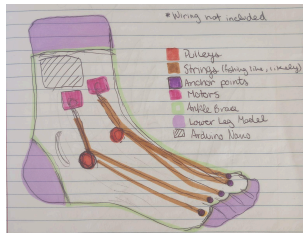 * Wiring not included
Pulleys
Strings (fishing line, likely)
Anchor points
Motors
Ankle Brace
Lower Leg Model
Arduino Nano